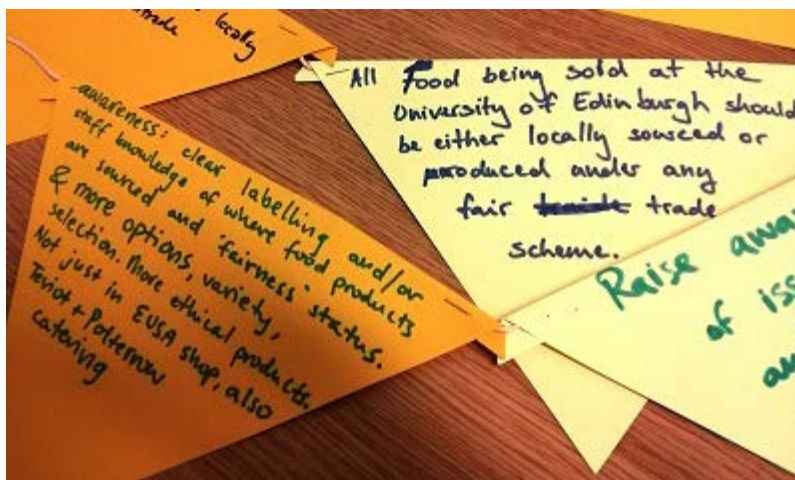 locally
trade
awareness: clear labelling and/or
staff knowledge of where food products
are sourced and 'fairness' status.
& more options, variety,
selection. More ethical products.
Not just in EUSA shop, also
Teviot + Potterrow
catering
All Food being sold at the
University of Edinburgh should
be either locally sourced or
produced under any
fair trade
scheme.
Raise
of